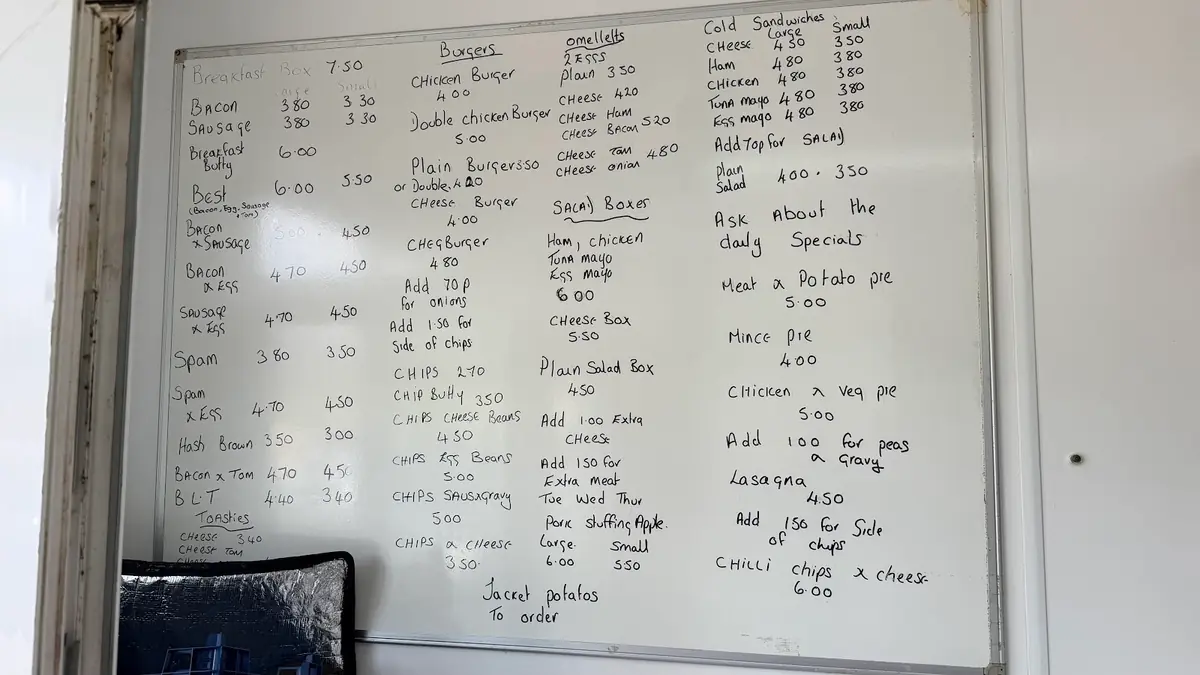 Breakfast Box 7.50
Large Small
Bacon 380 330
Sausage 380 330
Breakfast 6.00
Butty
Best 6.00 5.50
(Bacon, Egg, Sausage
+ Tom)
Bacon 500 . 450
x Sausage
Bacon 470 450
x Egg
Sausage 4.70 450
x Egg
Spam 380 350
Spam
x Egg 4.70 450
Hash Brown 350 300
Bacon x Tom 470 450
B L.T 4.40 340
Toasties
Cheese 340
Cheese Tom
Burgers
Chicken Burger
400
Double chicken Burger
5.00
Plain Burger 350
or Double. 420
Cheese Burger
4.00
CHEGBurger
480
Add 70p
for onions
Add 1.50 for
Side of chips
CHIPS 270
CHIP Butty 350
CHIPS CHEESE Beans
450
CHIPS Egg Beans
5.00
CHIPS SAUSxgravy
500
CHIPS a CHEESE
350.
omellelts
2 Eggs
Plain 350
Cheese 420
Cheese Ham
Cheese Bacon 520
Cheese Tom 480
Cheese onion
SALAD Boxes
Ham, chicken
Tuna mayo
Egg mayo
600
CHEESE Box
5.50
Plain Salad Box
450
Add 1.00 Extra
CHEESE
Add 150 for
Extra meat
Tue Wed Thur
Pork stuffing Apple.
Large. Small
6.00 550
Jacket potatos
To order
Cold Sandwiches
Large Small
CHEESE 450 350
Ham 480 380
CHICKEN 480 380
Tuna mayo 480 380
Egg mayo 480 380
Add 70p for SALAD
Plain
Salad 400 . 350
Ask About the
daily Specials
Meat a Potato pie
5.00
Mince pie
4.00
CHicken a veg pie
5.00
Add 100 for peas
a gravy
Lasagna
4.50
Add 150 for Side
of chips
CHILLI chips x cheese
6.00